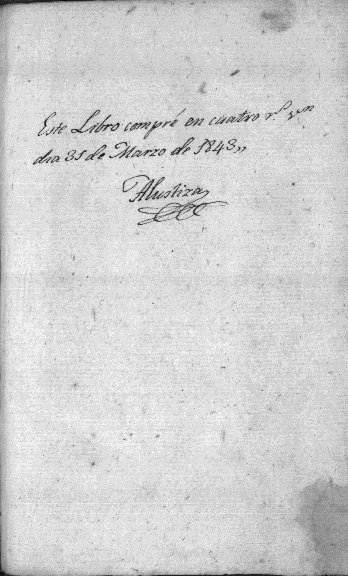 Este Libro compré en cuatro r.ˢ v.ⁿ
dia 31 de Marzo de 1843,,
Alustiza